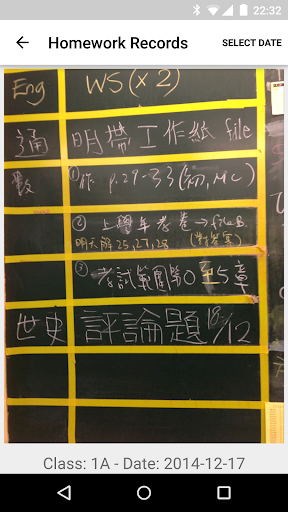 22:32
Homework Records
SELECT DATE
Eng WS (x2)
通 明帶工作紙 file
數 ①作 p.29-33 (初, MC)
② 上學年考卷 → file B.
明天解 25, 27, 28 (對答案)
③ 考試範圍第0至5章
世史 評論題 18/12
Class: 1A - Date: 2014-12-17